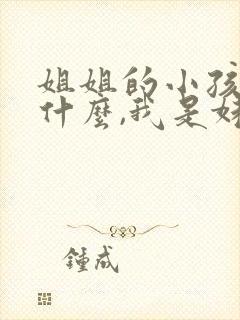 姐姐的小孩
什麼,我是妹
鍾成